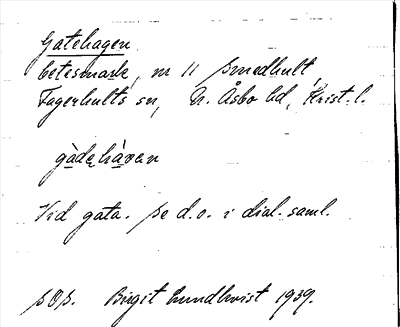 Gatehagen
betesmark, nr 11 Smedhult
Fagerhults sn, N. Åsbo hd, Krist. l.
gàdęhàvan
Vid gata. Se d.o. i dial. saml.
SOS. Birgit Lundkvist 1939.